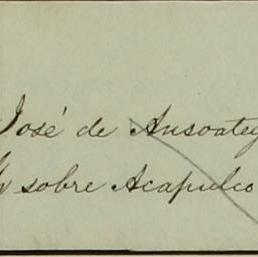 José de Ansoateg
sobre Acapulco